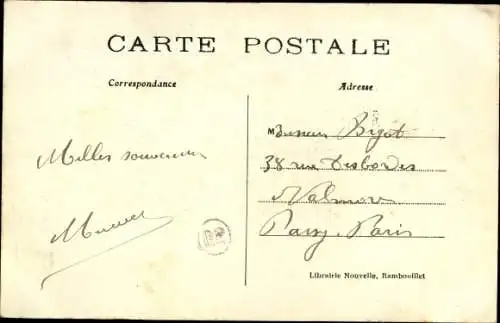 CARTE POSTALE
Correspondance
Adresse
Milles souvenirs
Monsieur Bigot
38 rue Desbordes
Valmore
Passy. Paris
Librairie Nouvelle, Rambouillet